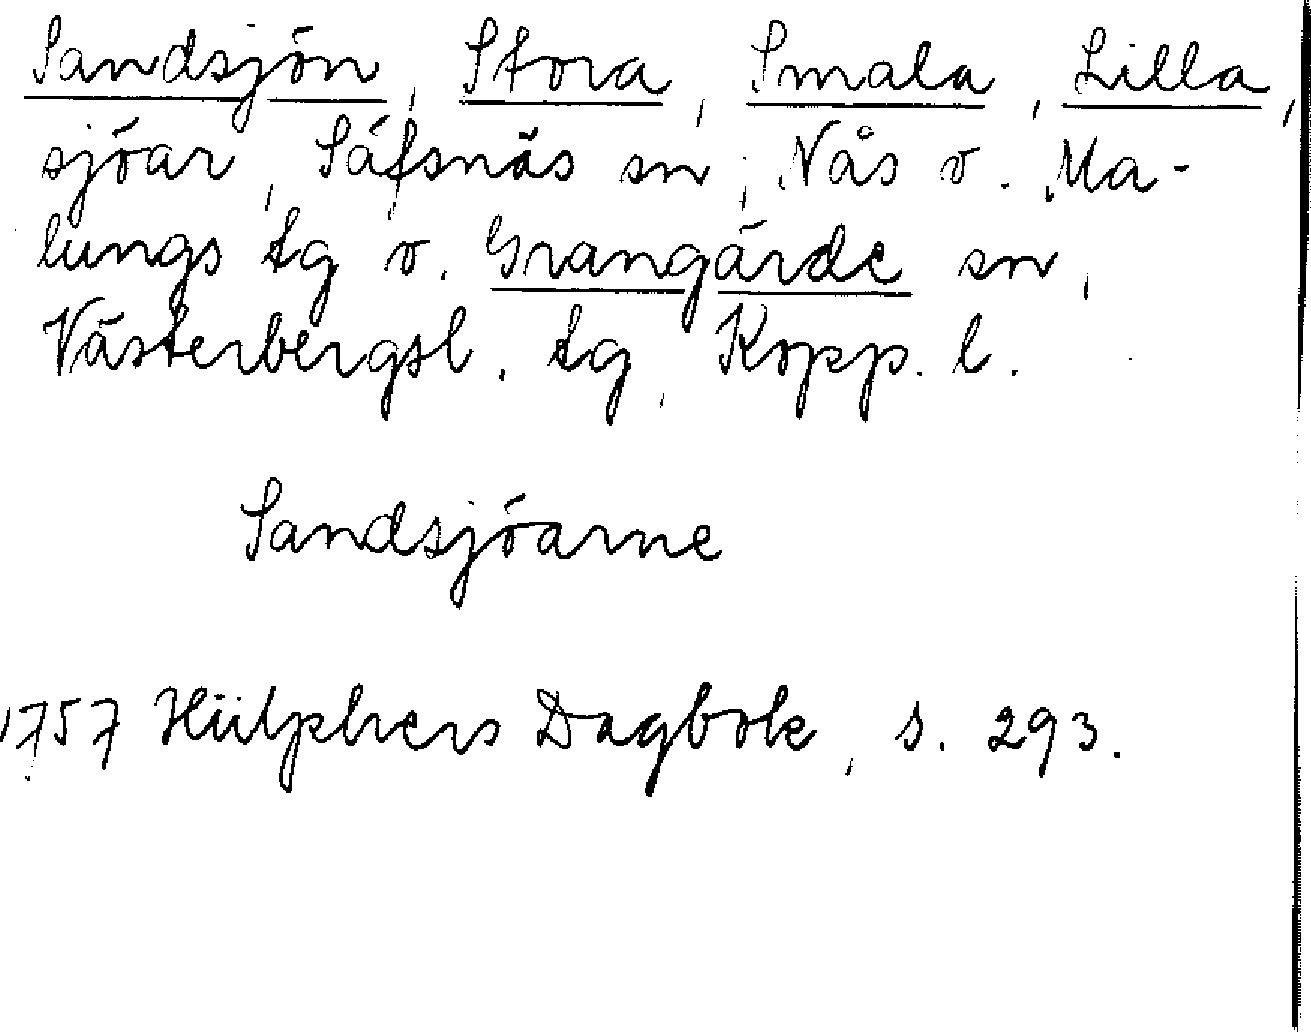 Sandsjön, Stora, Smala, Lilla,
sjöar, Säfsnäs sn, Nås o. Ma-
lungs tg o. Grangärde sn,
Västerbergsl. tg, Kopp. l.
Sandsjöarne
1757 Hülphers Dagbok, s. 293.